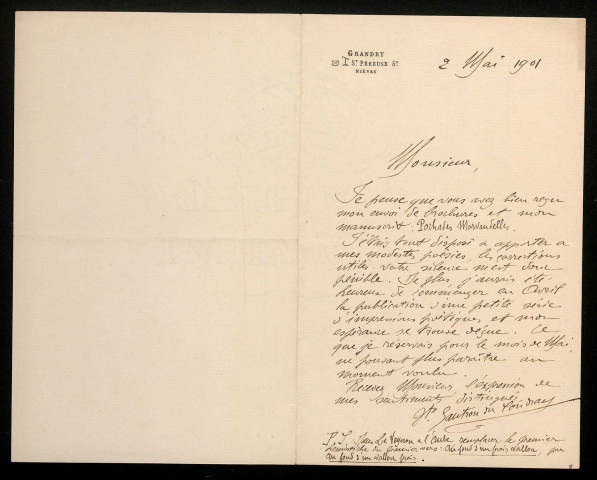 GRANDRY
St PÉREUSE
NIÈVRE
2 Mai 1901
Monsieur,
Je pense que vous avez bien reçu
mon envoi de brochures et mon
manuscrit. Pochades Morvandelles.
J'étais tout disposé à apporter à
mes modestes poésies, les corrections
utiles votre silence m'est donc
pénible. De plus j'aurais été
heureux de commencer en Avril
la publication d'une petite série
d'impressions poétiques et mon
espérance se trouve déçue. Ce
que je réservais pour le mois de Mai,
ne pouvant plus paraître au
moment voulu.
Recevez Monsieur l'expression de
mes sentiments distingués
Gautron du Coudray
P.S. Dans Le à l'aube remplacer le premier
hémistiche du premier vers : Au fond d'un frais vallon, par
Au fond d'un vallon frais.